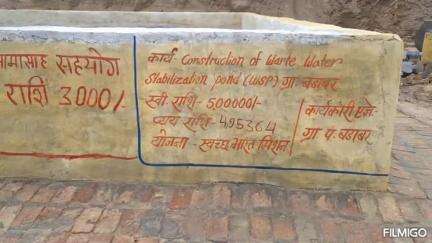 मामाशाह सहयोग
राशि 3000/-
कार्य Construction of Warte Water
Stabilization pond (WSP) ग्रा. बडाबर
स्वी राशि - 500000/-
व्यय राशि - 495364
योजना - स्वच्छ भारत मिशन
कार्यकारी एजे-
ग्रा. प. बडाबर
FILMIGO